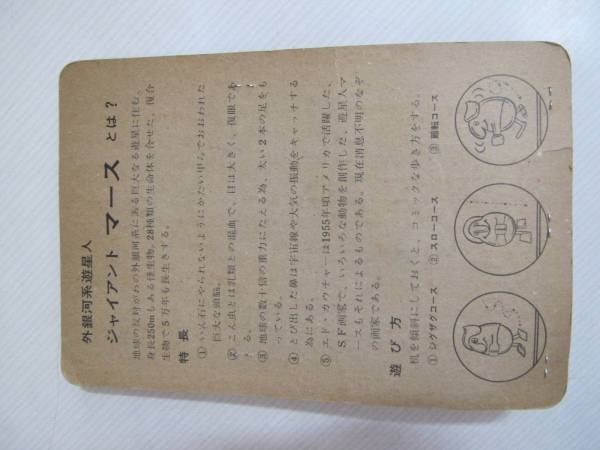 外銀河系遊星人
ジャイアント マース とは？
地球の反対がわの外銀河系にある巨大なる遊星に住む。
身長250mもある怪生物。28種類の生命体を合せた、複合
生物で5万年も長生きする。
特長
① いん石にやられないようにかたい甲らでおおわれた
巨大な頭脳。
② こん虫とは乳類との混血で、目は大きく、復眼であ
る。
③ 地球の数十倍の重力にたえる為、太い2本の足をも
っている。
④ とび出した鼻は宇宙線や大気の振動をキャッチする
為にある。
⑤ エド・カウチャーは1955年頃アメリカで活躍した、
SF画家で、いろいろな動物を創作した。遊星人マ
ースもそれによるものである。現在消息不明のなぞ
の画家である。
遊び方
机を傾斜にしておくと、コミックな歩き方をする。
① ジグザグコース ② スローコース ③ 廻転コース